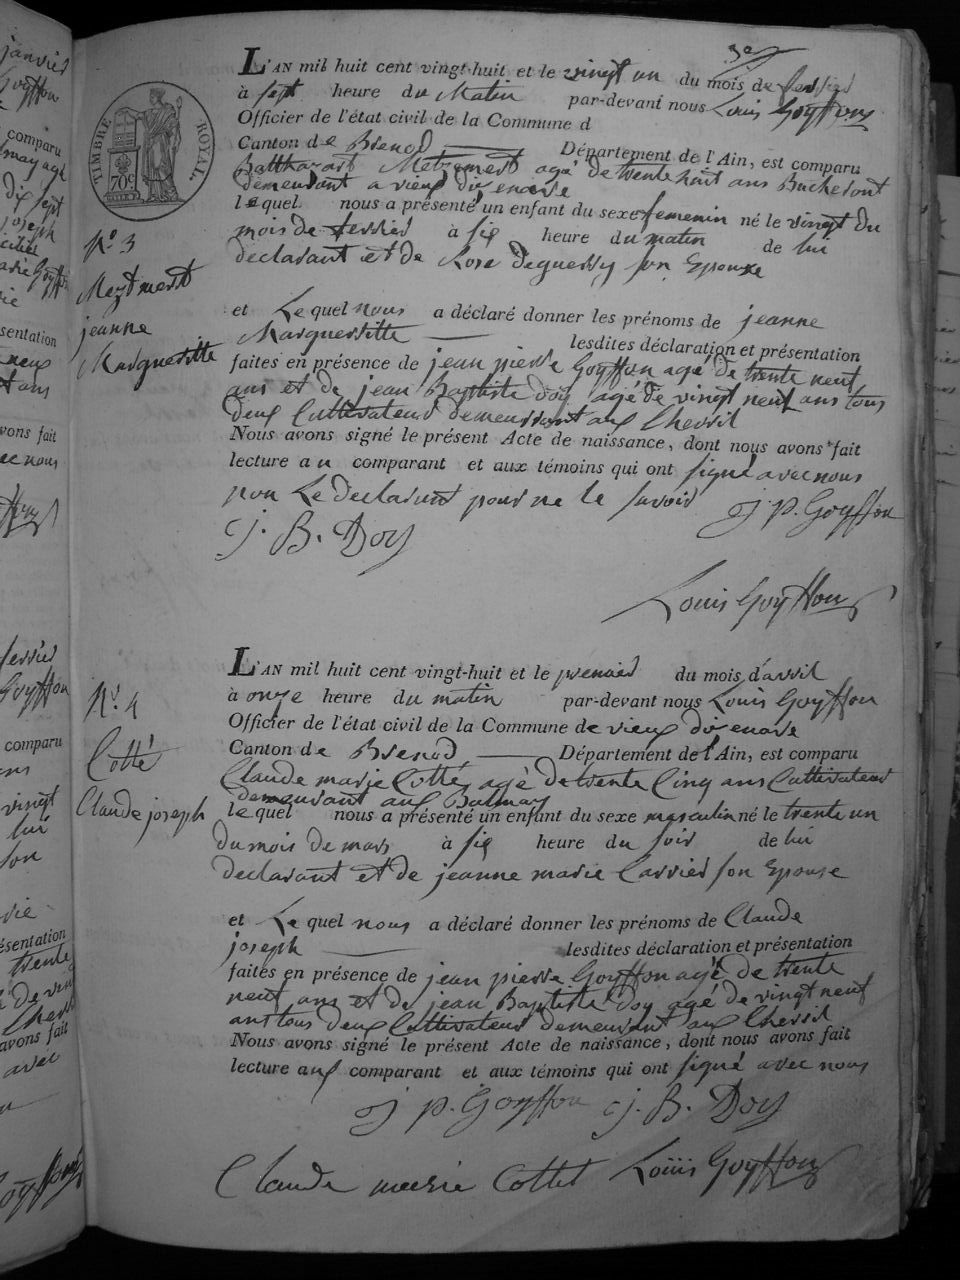 3e
TIMBRE ROYAL.
70c
L'AN mil huit cent vingt-huit et le vingt un du mois de fevrier
à sept heure du Matin par-devant nous Louis Goyffon
Officier de l'état civil de la Commune d
Canton de Brenod Département de l'Ain, est comparu
Balthazart Metzmert agé de trente huit ans Bucheront
demeurant a vieux d'izenave
lequel nous a présenté un enfant du sexe femenin né le vingt du
mois de fevrier à six heure du matin de lui
declarant et de Rose deguerry son Epouxe
No 3
Meyzmert
jeanne
Margueritte
et Le quel nous a déclaré donner les prénoms de jeanne
Margueritte lesdites déclaration et présentation
faites en présence de jean pierre Goyffon agé de trente neuf
ans et de jean Baptiste Doy agé de vingt neuf ans tous
deux Cultivateurs demeurant aux Chevril
Nous avons signé le présent Acte de naissance, dont nous avons fait
lecture au comparant et aux témoins qui ont signé avec nous
non Le declarant pour ne le savoir
j P. Goyffon
j. B. Doy
Louis Goyffon
L'AN mil huit cent vingt-huit et le premier du mois d'avril
à onze heure du matin par-devant nous Louis Goyffon
Officier de l'état civil de la Commune de vieux d'izenave
Canton de Brenod Département de l'Ain, est comparu
Claude marie Cotté, agé de trente Cinq ans Cultivateur
demeurant aux Balmay
lequel nous a présenté un enfant du sexe masculin né le trente un
du mois de mars à six heure du soir de lui
declarant et de jeanne marie Carrier son Epouse
No 4
Cotté
Claude joseph
et Le quel nous a déclaré donner les prénoms de Claude
joseph lesdites déclaration et présentation
faites en présence de jean pierre Goyffon agé de trente
neuf ans et de jean Baptiste Doy agé de vingt neuf
ans tous deux Cultivateurs demeurant aux Chevril
Nous avons signé le présent Acte de naissance, dont nous avons fait
lecture aux comparant et aux témoins qui ont signé avec nous
j P. Goyffon j. B. Doy
Claude marie Cottet Louis Goyffon